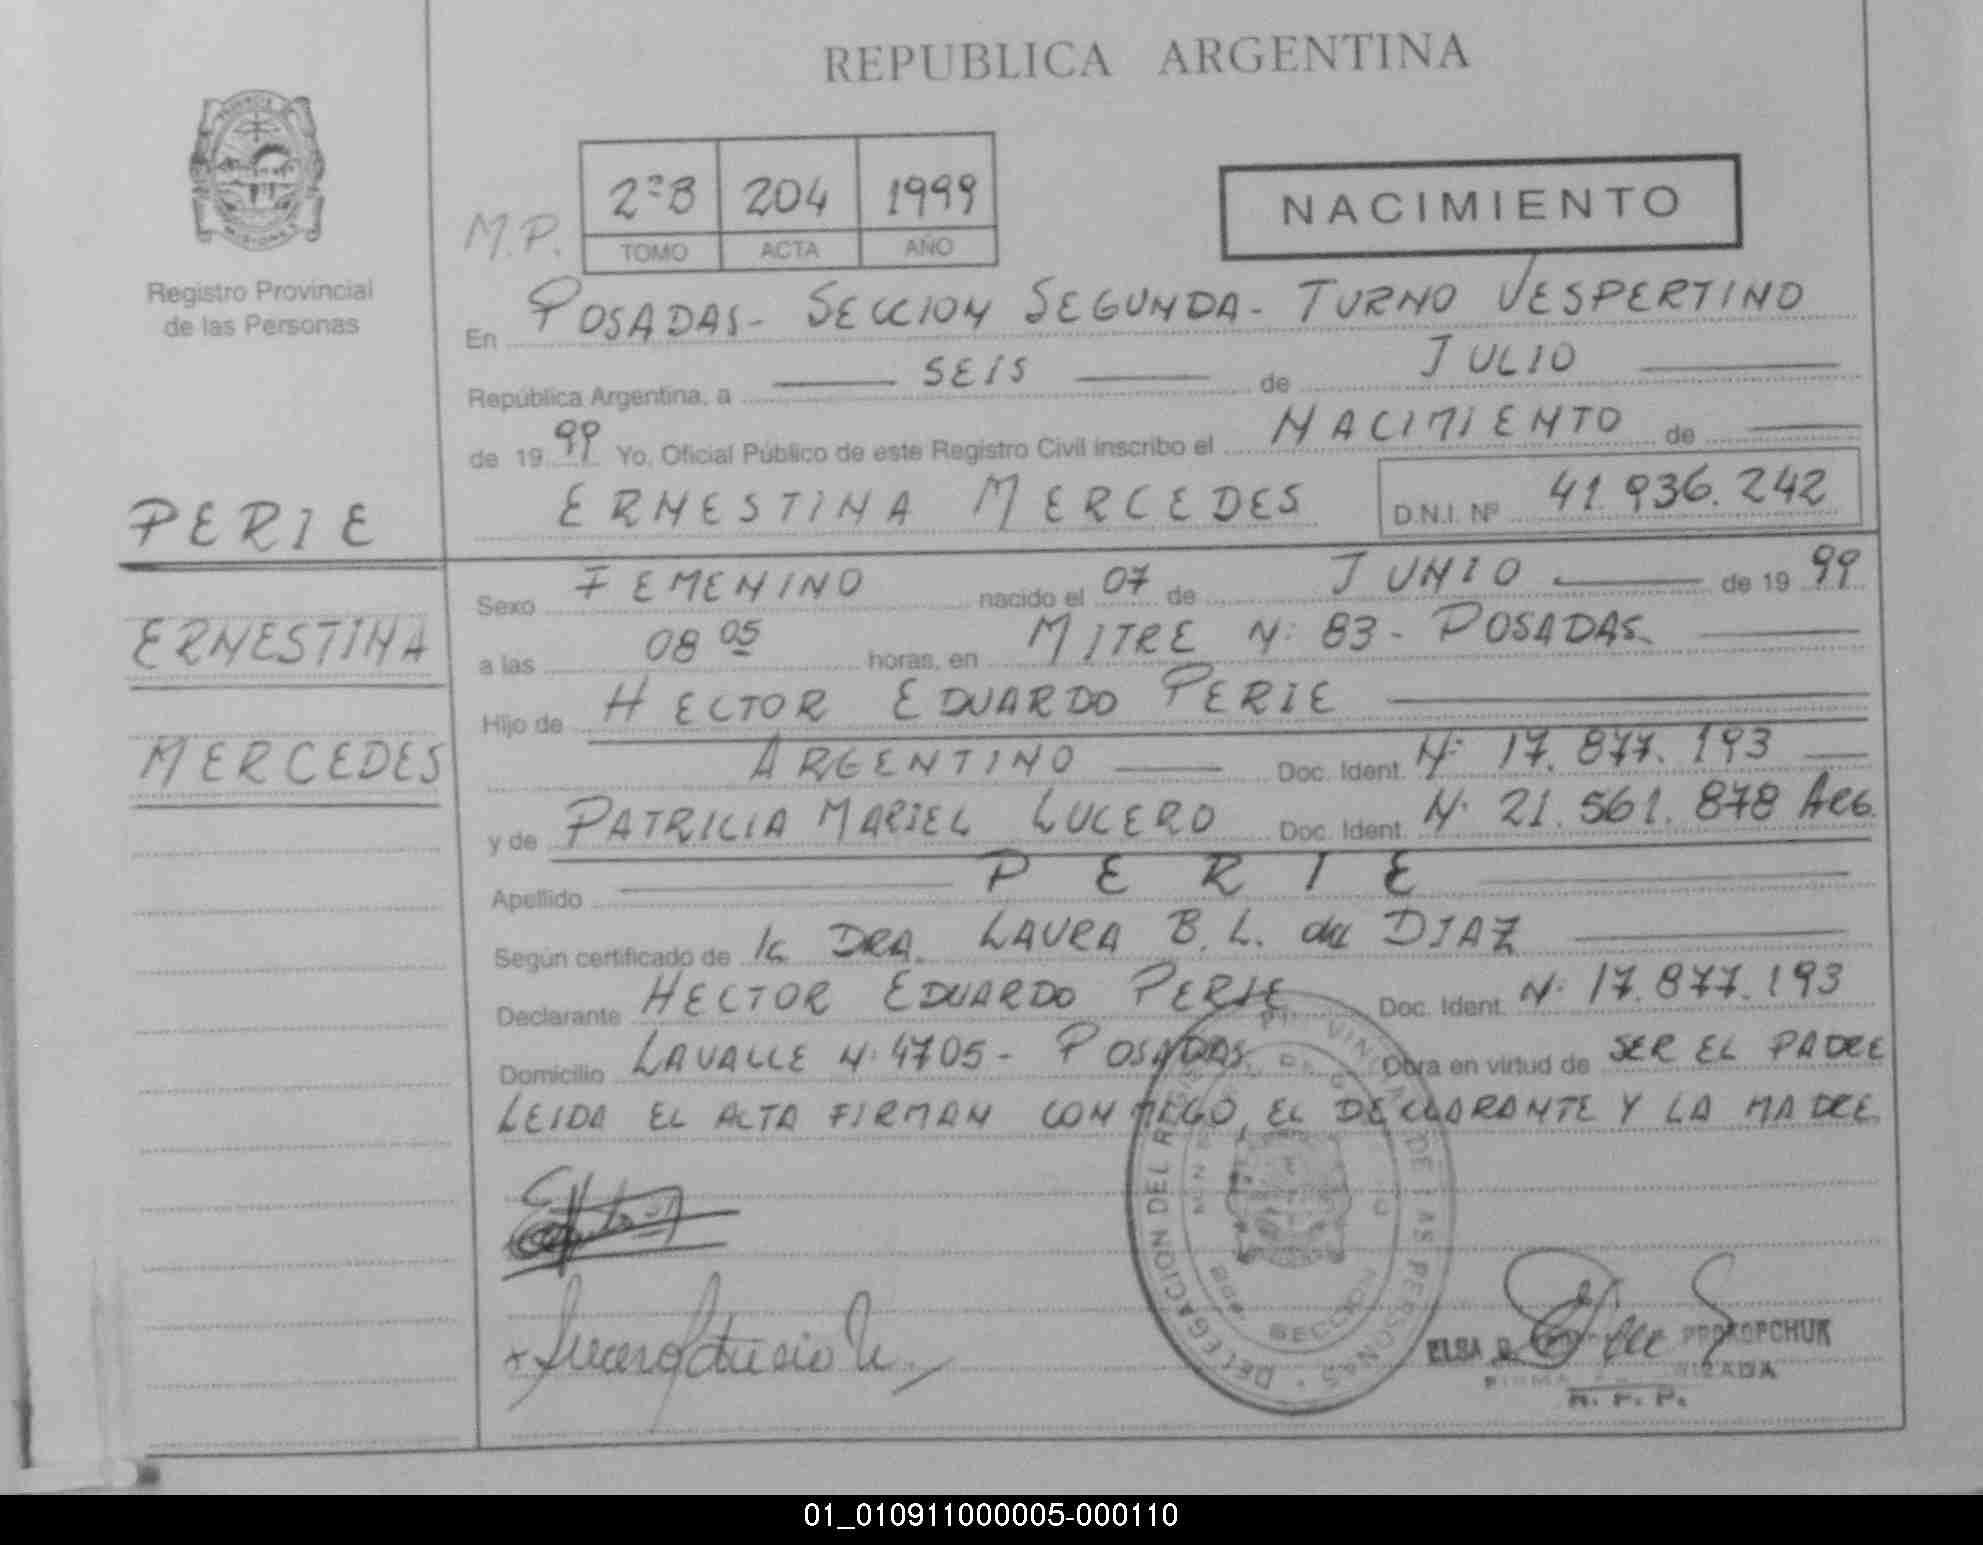 REPUBLICA ARGENTINA
PROVINCIA
MISIONES
Registro Provincial
de las Personas
M.P.
2ºB 204 1999
TOMO ACTA AÑO
NACIMIENTO
En POSADAS - SECCION SEGUNDA - TURNO VESPERTINO
República Argentina, a SEIS de JULIO
de 19 99 Yo, Oficial Público de este Registro Civil inscribo el NACIMIENTO de
ERNESTINA MERCEDES D.N.I. Nº 41.936.242
PERIE
ERNESTINA
MERCEDES
Sexo FEMENINO nacido el 07 de JUNIO de 19 99
a las 08 05 horas, en MITRE Nº 83 - POSADAS
Hijo de HECTOR EDUARDO PERIE
ARGENTINO Doc. Ident. Nº 17.877.193
y de PATRICIA MARIEL LUCERO Doc. Ident. Nº 21.561.878 ARG.
Apellido PERIE
Según certificado de la DRA. LAURA B. L. de DIAZ
Declarante HECTOR EDUARDO PERIE Doc. Ident. Nº 17.877.193
Domicilio LAVALLE Nº 4705 - POSADAS Obra en virtud de SER EL PADRE
LEIDA EL ACTA FIRMAN CONMIGO, EL DECLARANTE Y LA MADRE
DELEGACION DEL DE LAS PERSONAS
SECCION
ELSA PROKOPCHUK
FIRMA
R. P. P.
01_010911000005-000110